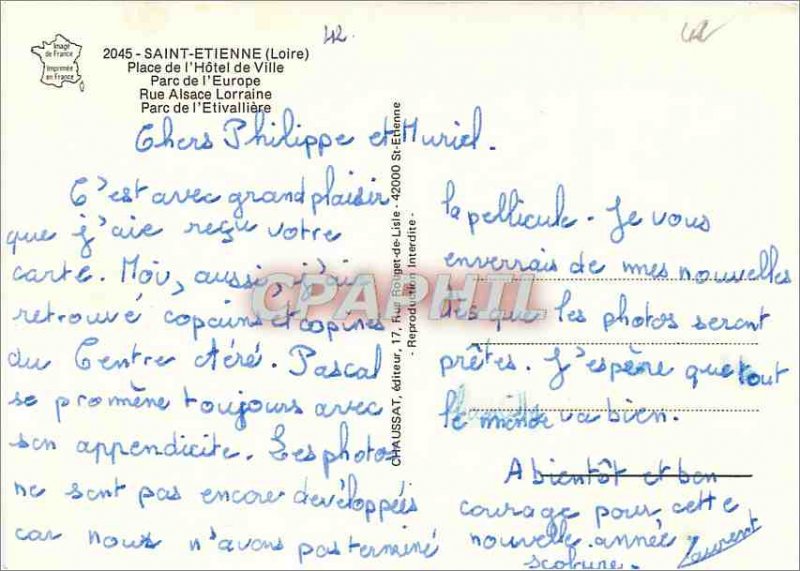 42
42
Image
de France
Imprimée
en France
2045 - SAINT-ETIENNE (Loire)
Place de l'Hôtel de Ville
Parc de l'Europe
Rue Alsace Lorraine
Parc de l'Etivallière
Chers Philippe et Muriel.
C'est avec grand plaisir
que j'aie reçu votre
carte. Moi, aussi, j'ai
retrouvé copains et copines
du Centre Aéré. Pascal
se promène toujours avec
son appendicite. Les photos
ne sont pas encore développées
car nous n'avons pas terminé
CHAUSSAT, éditeur, 17, Rue Rouget-de-Lisle - 42000 St-Etienne
- Reproduction Interdite -
la pellicule. Je vous
enverrais de mes nouvelles
dès que les photos seront
prêtes. J'espère que tout
le monde va bien.
A bientôt et bon
courage pour cette
nouvelle année
scolaire.
Laurent
CPARPHIL